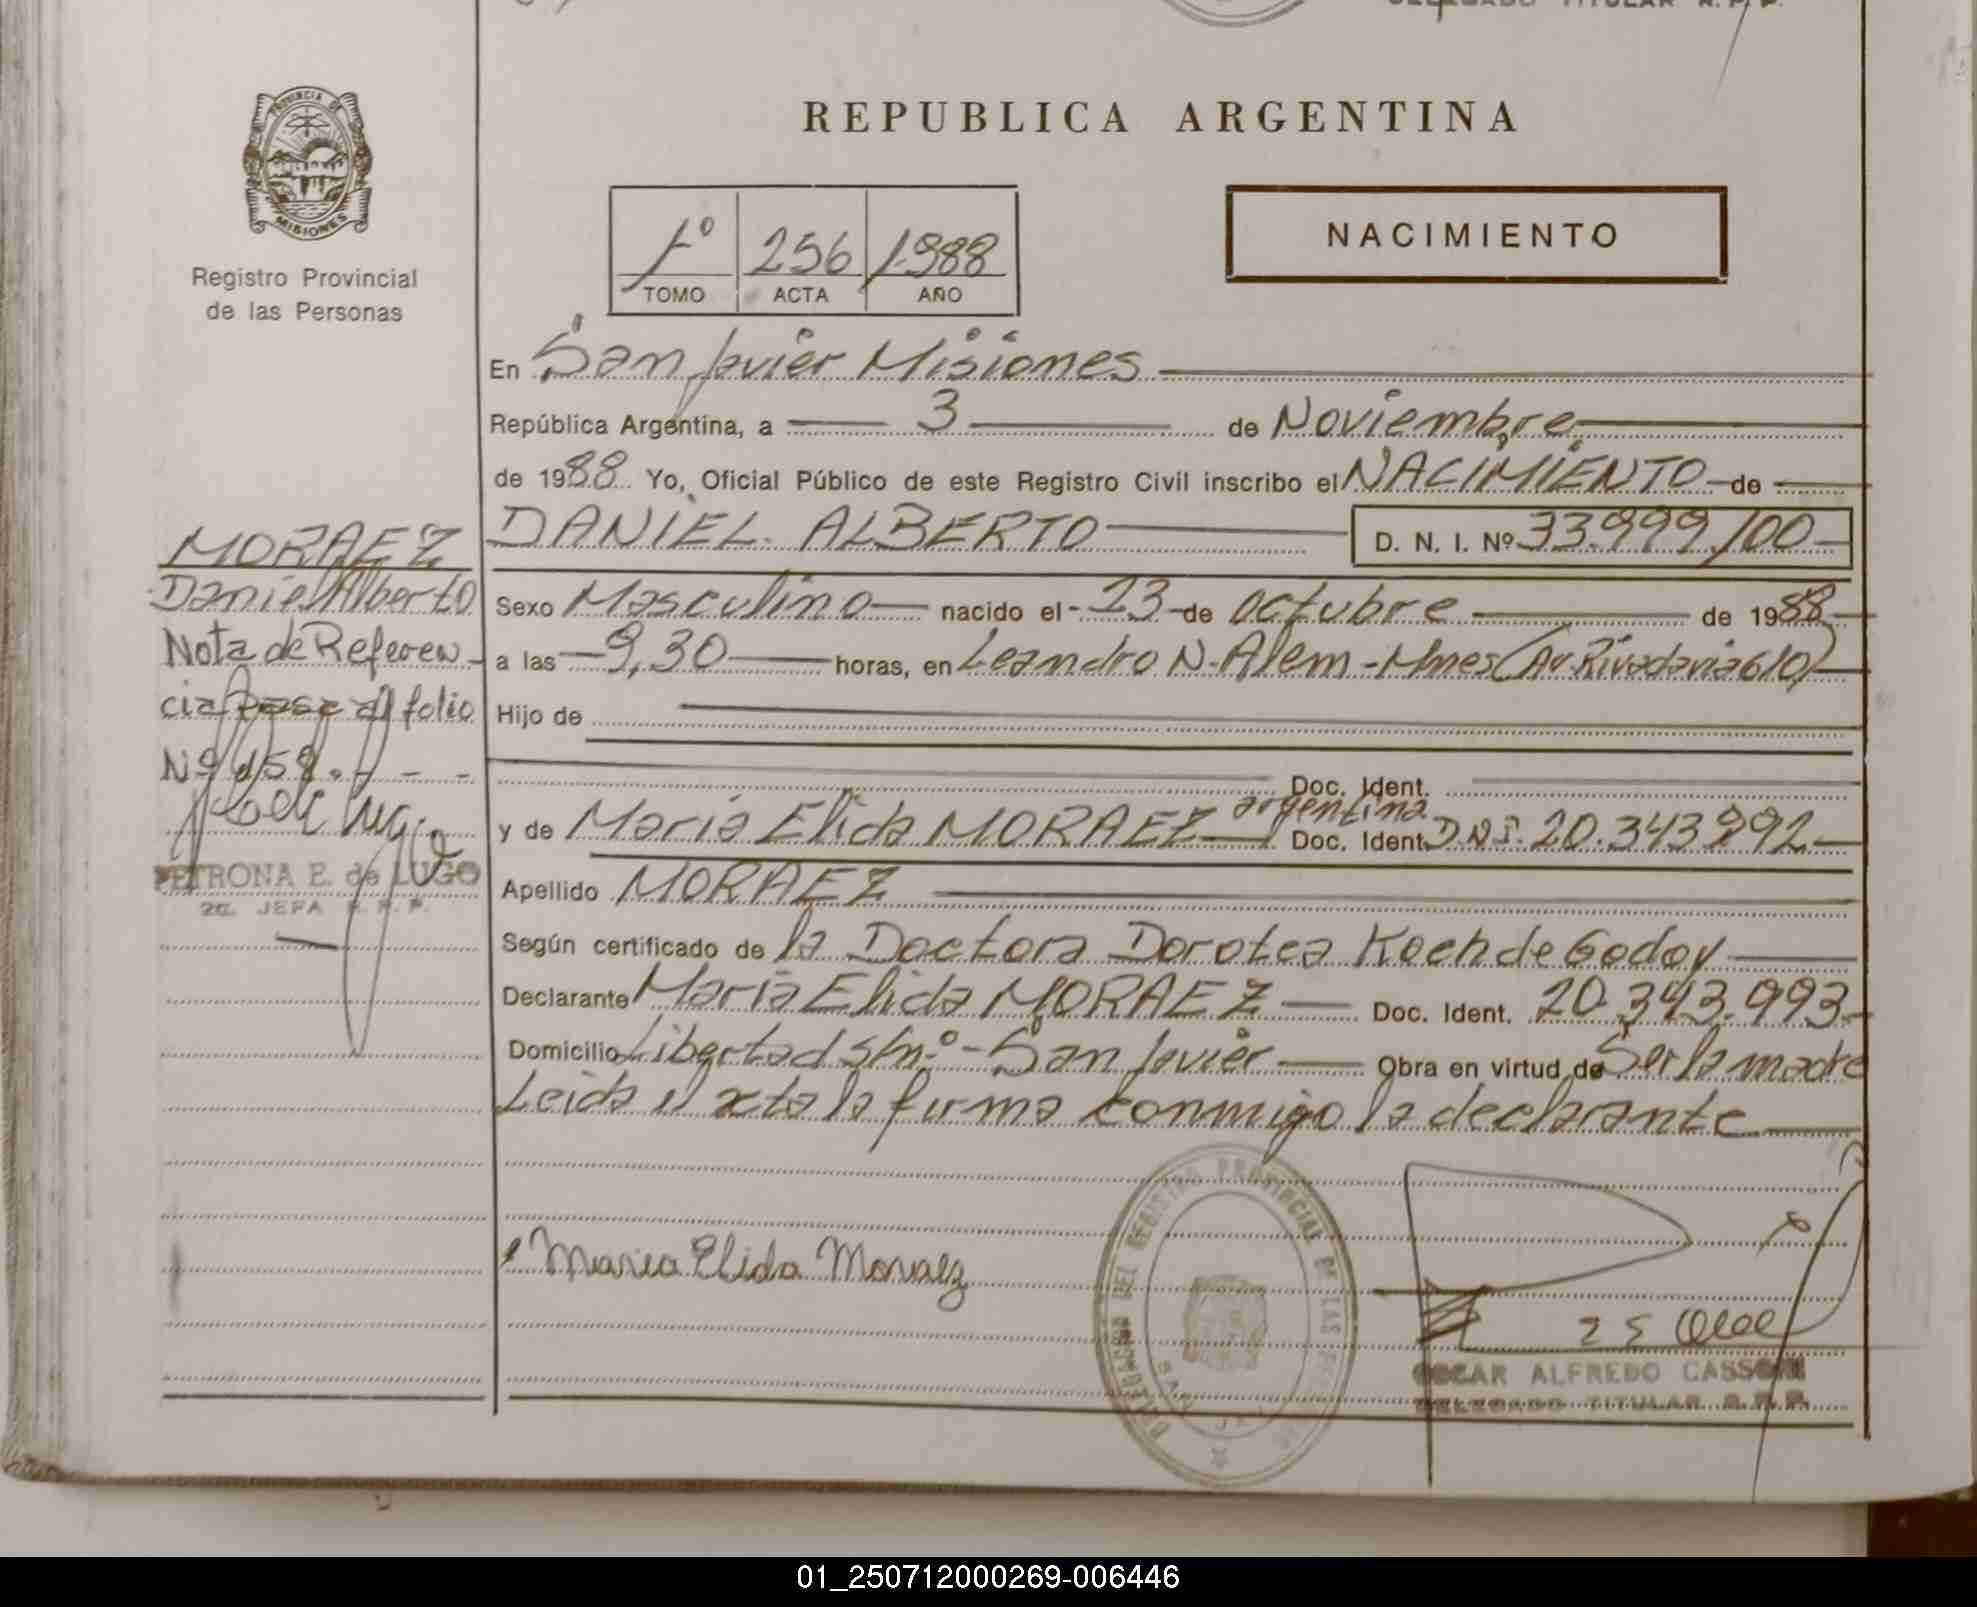 DELEGADO TITULAR R. P. P.
PROVINCIA DE
MISIONES
Registro Provincial
de las Personas
REPUBLICA ARGENTINA
1º 256 1988
TOMO ACTA AÑO
NACIMIENTO
En San Javier Misiones
República Argentina, a 3 de Noviembre
de 1988 Yo, Oficial Público de este Registro Civil inscribo el NACIMIENTO de
DANIEL ALBERTO D. N. I. Nº 33.999/00
Sexo Masculino nacido el - 23 - de octubre de 1988
a las 9,30 horas, en Leandro N. Alem - Mnes (Av. Rivadavia 610)
Hijo de
Doc. Ident.
y de Maria Elida MORAEZ argentina Doc. Ident. DNI. 20.343.992
Apellido MORAEZ
Según certificado de la Doctora Dorotea Koch de Godoy
Declarante Maria Elida MORAEZ Doc. Ident. 20.343.993
Domicilio Libertad s/nº - San Javier Obra en virtud de Ser la madre
Leida el acta la firma conmigo la declarante
MORAEZ
Daniel Alberto
Nota de Referen-
cia Pasa al folio
Nº 159. - - -
PETRONA E. de LUGO
2a. JEFA R. P. P.
Maria Elida Moraez
REGISTRO PROVINCIAL DE LAS
OSCAR ALFREDO CASSONI
DELEGADO TITULAR R. P. P.
01_250712000269-006446